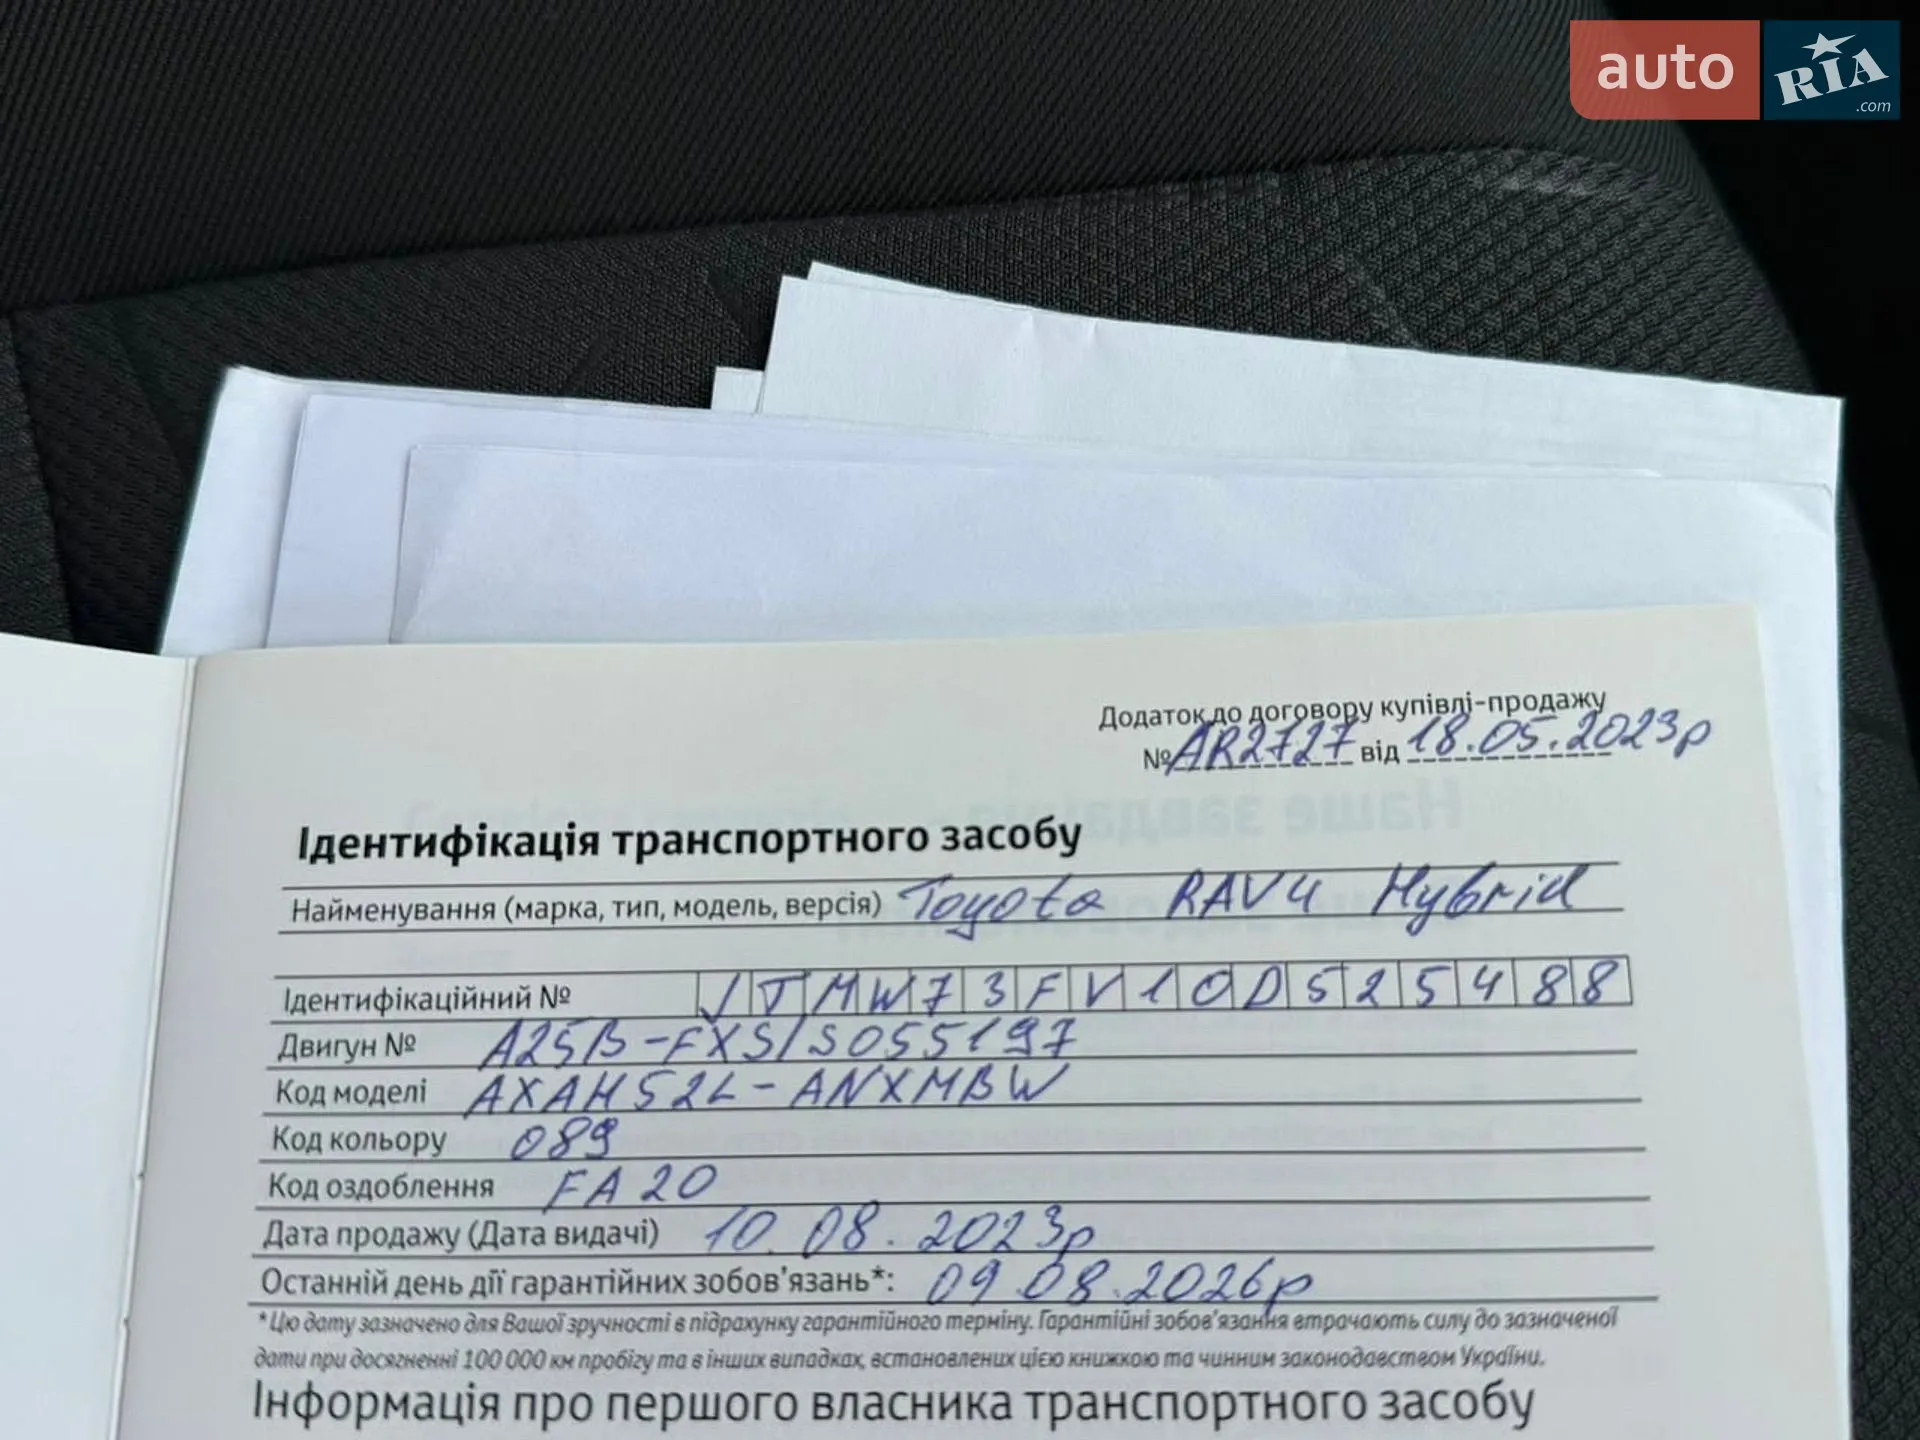 auto RIA .com
Додаток до договору купівлі-продажу
№ AR2727 від 18.05.2023р
Ідентифікація транспортного засобу
Найменування (марка, тип, модель, версія) Toyota RAV4 Hybrid
Ідентифікаційний № JTMW73FV10D525488
Двигун № A25B-FXS/S055197
Код моделі AXAH52L-ANXMBW
Код кольору 089
Код оздоблення FA20
Дата продажу (Дата видачі) 10.08.2023р
Останній день дії гарантійних зобов'язань*: 09.08.2026р
*Цю дату зазначено для Вашої зручності в підрахунку гарантійного терміну. Гарантійні зобов'язання втрачають силу до зазначеної
дати при досягненні 100 000 км пробігу та в інших випадках, встановлених цією книжкою та чинним законодавством України.
Інформація про першого власника транспортного засобу